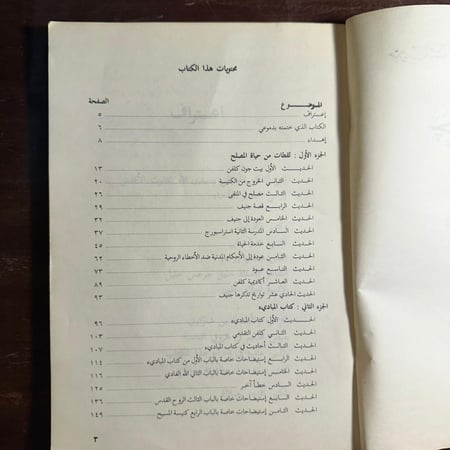 محتويات هذا الكتاب
الموضوع الصفحة
إعتراف ٥
الكتاب الذي ختمته بدموعي ٦
إهداء ٨
الجزء الأول : لقطات من حياة المصلح
الحديث الأول بيت جون كلفن ١٣
الحديث الثاني الخروج من الكنيسة ٢٠
الحديث الثالث مصلح في المنفى ٢٦
الحديث الرابع قصة جنيف ٢٩
الحديث الخامس العودة إلى جنيف ٣٢
الحديث السادس المدرسة الثانية استراسبورج ٣٧
الحديث السابع خدمة الحياة ٤٥
الحديث الثامن عودة إلى الأحكام المدنية ضد الأخطاء الروحية ٦٢
الحديث التاسع عود ٧٣
الحديث العاشر أكاديمية كلفن ٨٩
الحديث الحادي عشر تواريخ تذكرها جنيف ٩٣
الجزء الثاني : كتاب المبادىء
الحديث الأول كتاب المبادىء ٩٦
الحديث الثاني كلفن التقدمي ١٠٣
الحديث الثالث أحاديث في كتاب المبادىء ١٠٧
الحديث الرابع إستيضاحات خاصة بالباب الأول من كتاب المبادىء ١١٤
الحديث الخامس إستيضاحات خاصة بالباب الثاني الله الفادي ١١٦
الحديث السادس خطأ آخر ١٢٥
الحديث السابع إستيضاحات خاصة بالباب الثالث الروح القدس ١٣٦
الحديث الثامن إستيضاحات خاصة بالباب الرابع كنيسة المسيح ١٤٩
٣